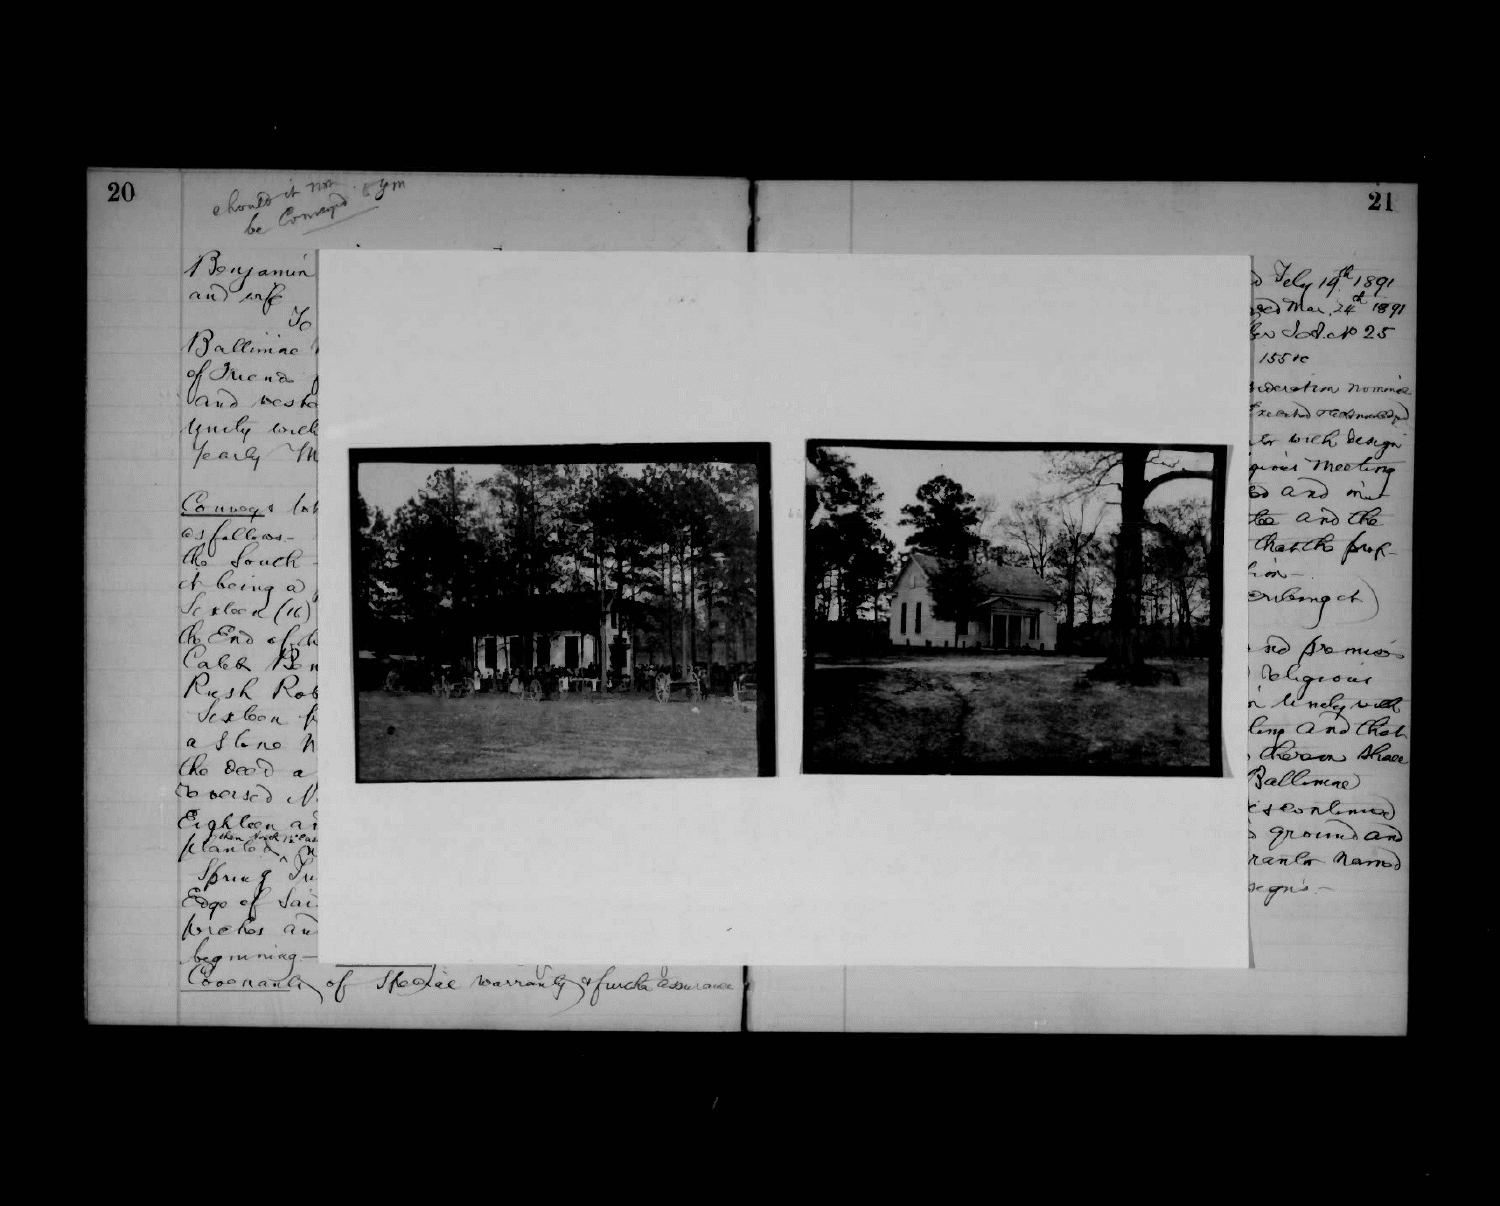 20
should it not
be Conveyed
Benjamin
and wife
To
Baltimore
of Friends
and
Unity with
Yearly M
Conveys lot
as follows-
the South
it being a
Sixteen (16)
the End of
Caleb Ben
Rush Rob
Sixteen
a stone N
the deed a
reversed N
Eighteen an
planted
Spring
Edge of Sai
perches and
beginning-
Covenants of Special warranty & further assurance
21
d Feby 19th 1891
Mar. 24th 1891
No 25
155 &c
nsideration nomina
Executed acknowledged
with design
gious Meeting
and
tee and the
that the prop-
tion-
cribing it)
and premises
religious
in Unity with
ting and that
thereon shall
Baltimore
discontinued
ground and
rantor named
ssigns-